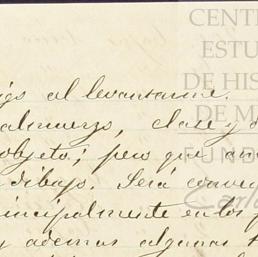 CENT
ESTU
DE HIS
DE M
FUND
igo al levantarme.
almuerzo, clase y d
objeto; pero que an
dibajo. Será conve
incipalmente en los p
y ademas algunas t